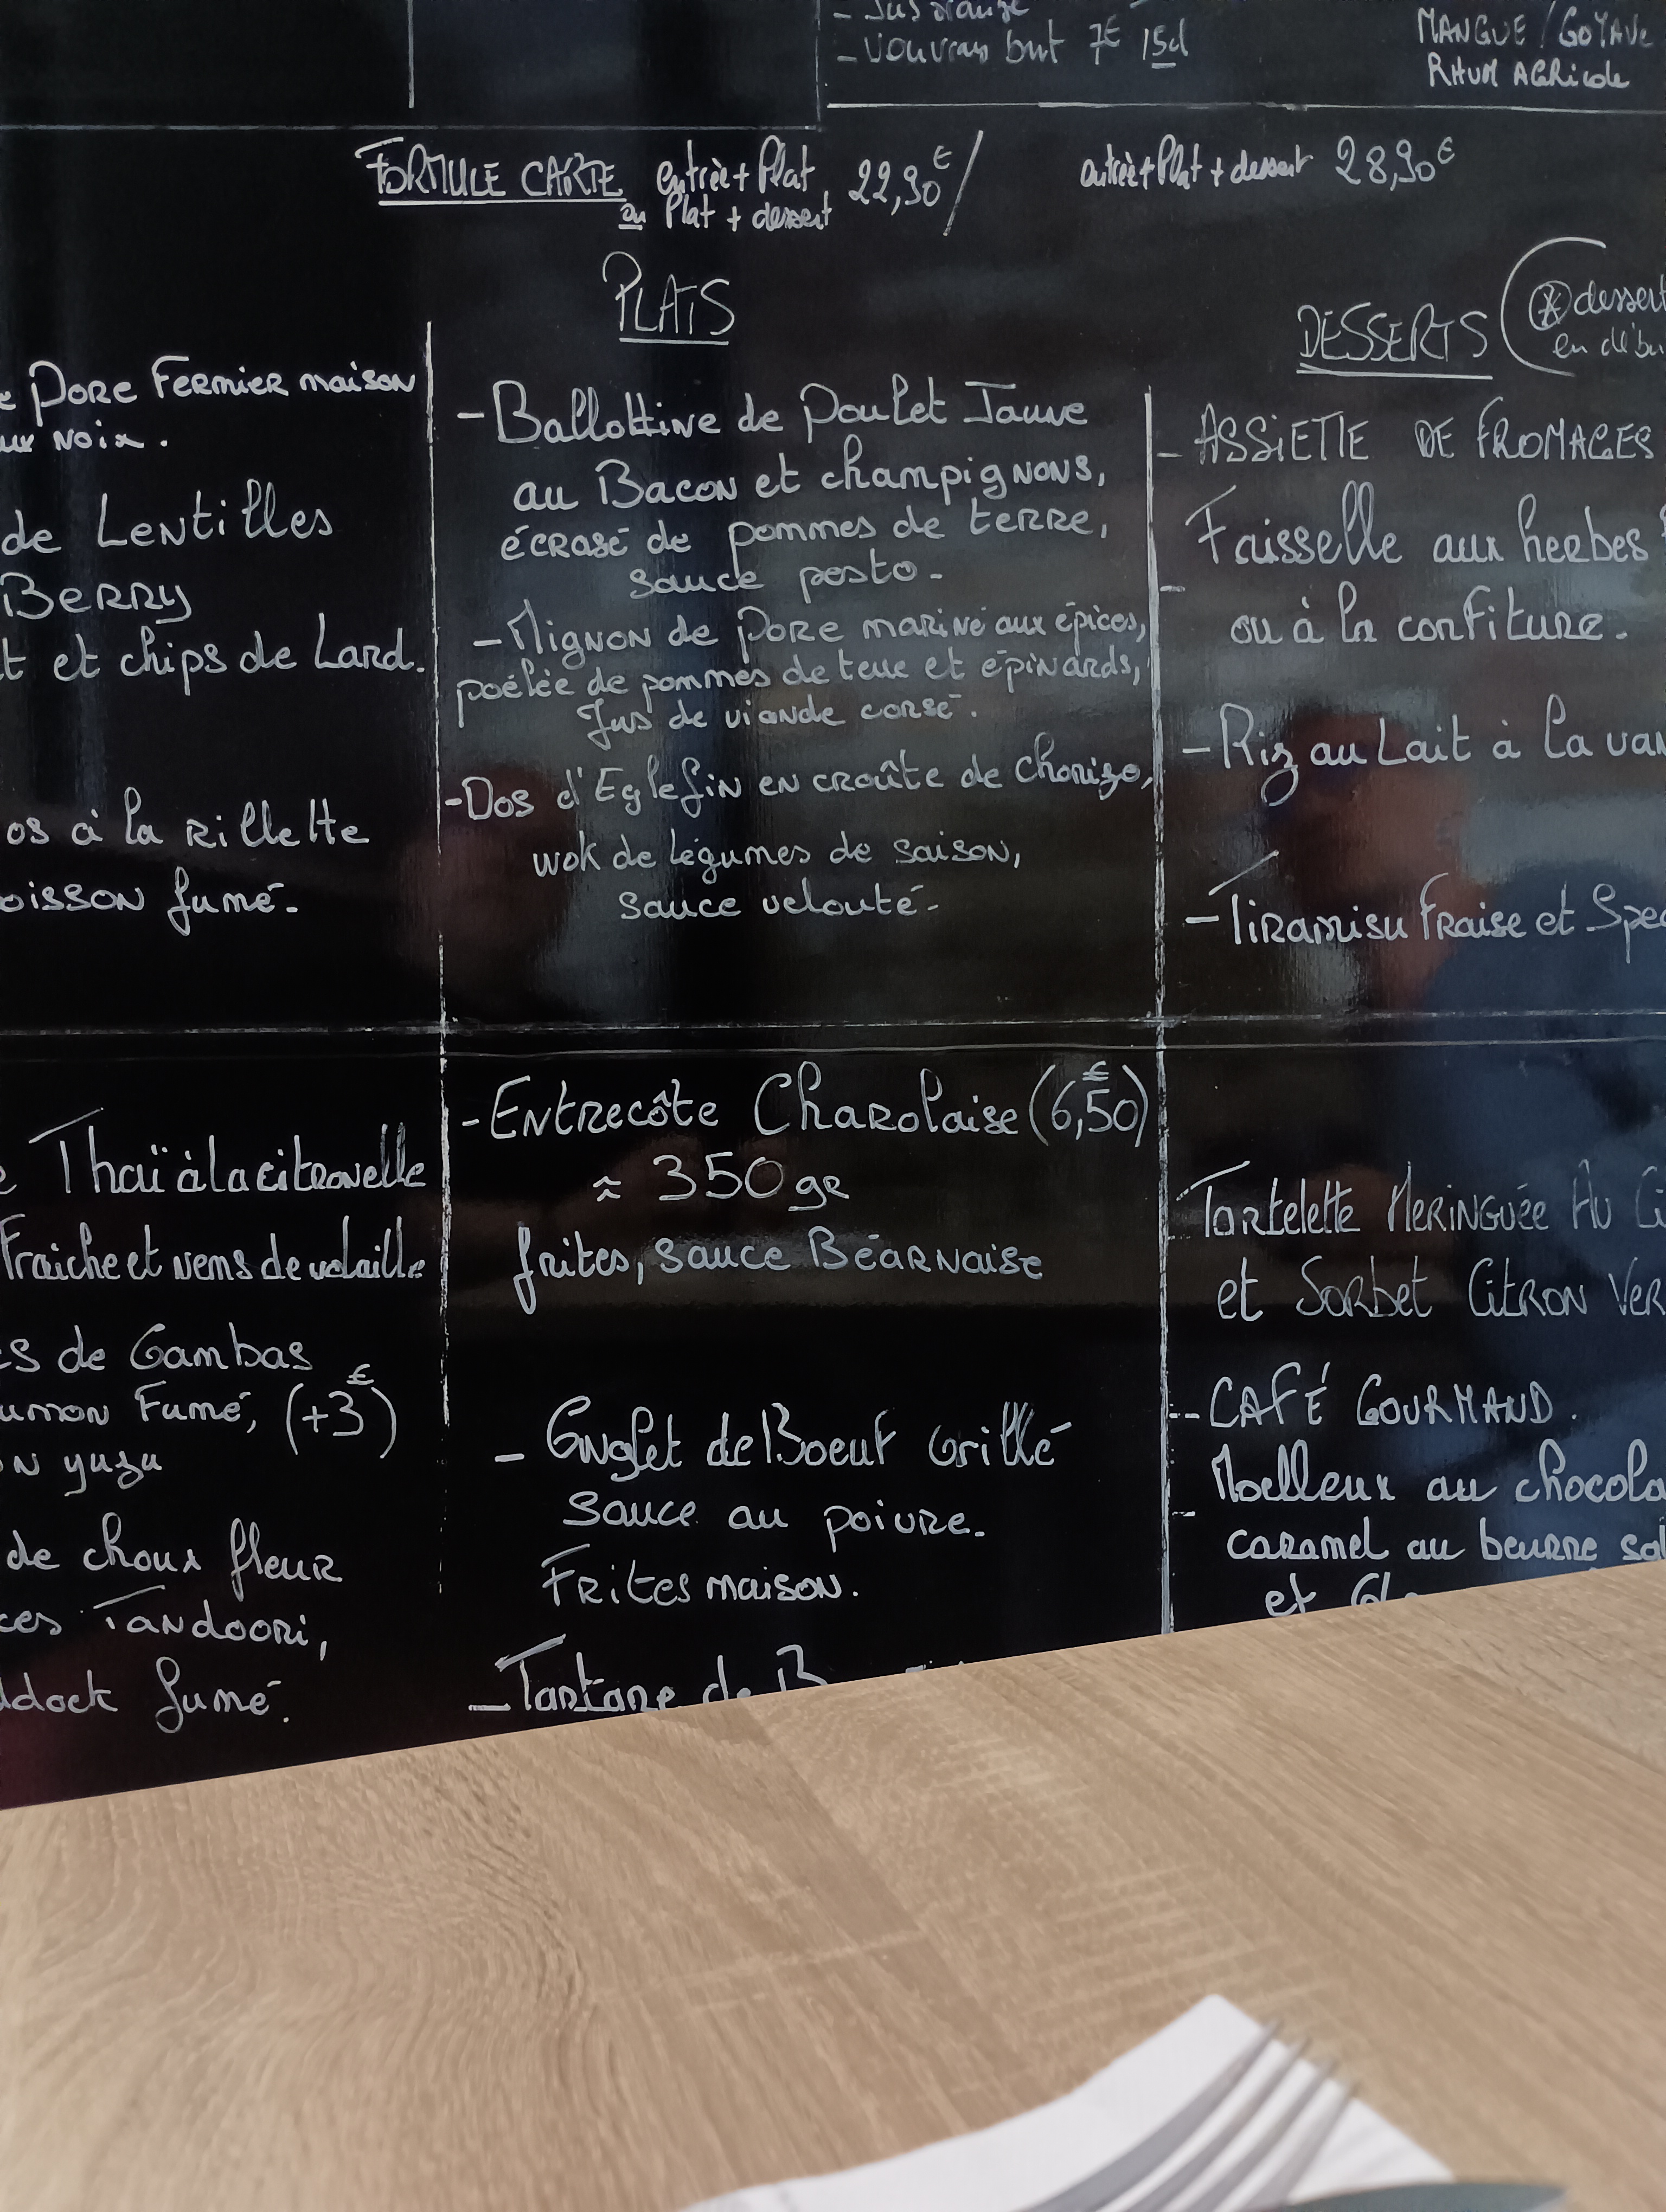 - Jus orange
- Vouvray brut 7€ 15cl
MANGUE / GOYAVE
RHUM AGRicole
FORMULE CARTE entrée + Plat 22,90€ /
ou Plat + dessert
entrée + Plat + dessert 28,90€
e Porc Fermier maison
aux Noix.
de Lentilles
Berry
t et chips de Lard.
os à la Rillette
oisson fumé.
e Thaï à la citronelle
Fraiche et nems de volaille
es de Gambas
umon Fumé, (+3€)
on yuzu
de choux fleur
ces Tandoori,
ddock fumé.
PLATS
- Ballottine de Poulet Jaune
au Bacon et champignons,
écrasé de pommes de terre,
sauce pesto.
- Mignon de Porc mariné aux épices,
poêlée de pommes de terre et épinards,
Jus de viande corsé.
- Dos d'Eglefin en croûte de Chorizo,
wok de légumes de saison,
sauce velouté.
- Entrecôte Charolaise (6,50€)
≈ 350 gr
frites, sauce Béarnaise
- Onglet de Boeuf Grillé
sauce au poivre.
Frites maison.
- Tartare de B
DESSERTS
* dessert
en débu
- ASSIETTE DE FROMAGES
- Faisselle aux herbes
ou à la confiture.
- Riz au Lait à la van
- Tiramisu Fraise et Spec
- Tartelette Meringuée Au Ci
et Sorbet Citron Ver
- CAFÉ GOURMAND.
- Moelleux au chocola
caramel au beurre sal
et